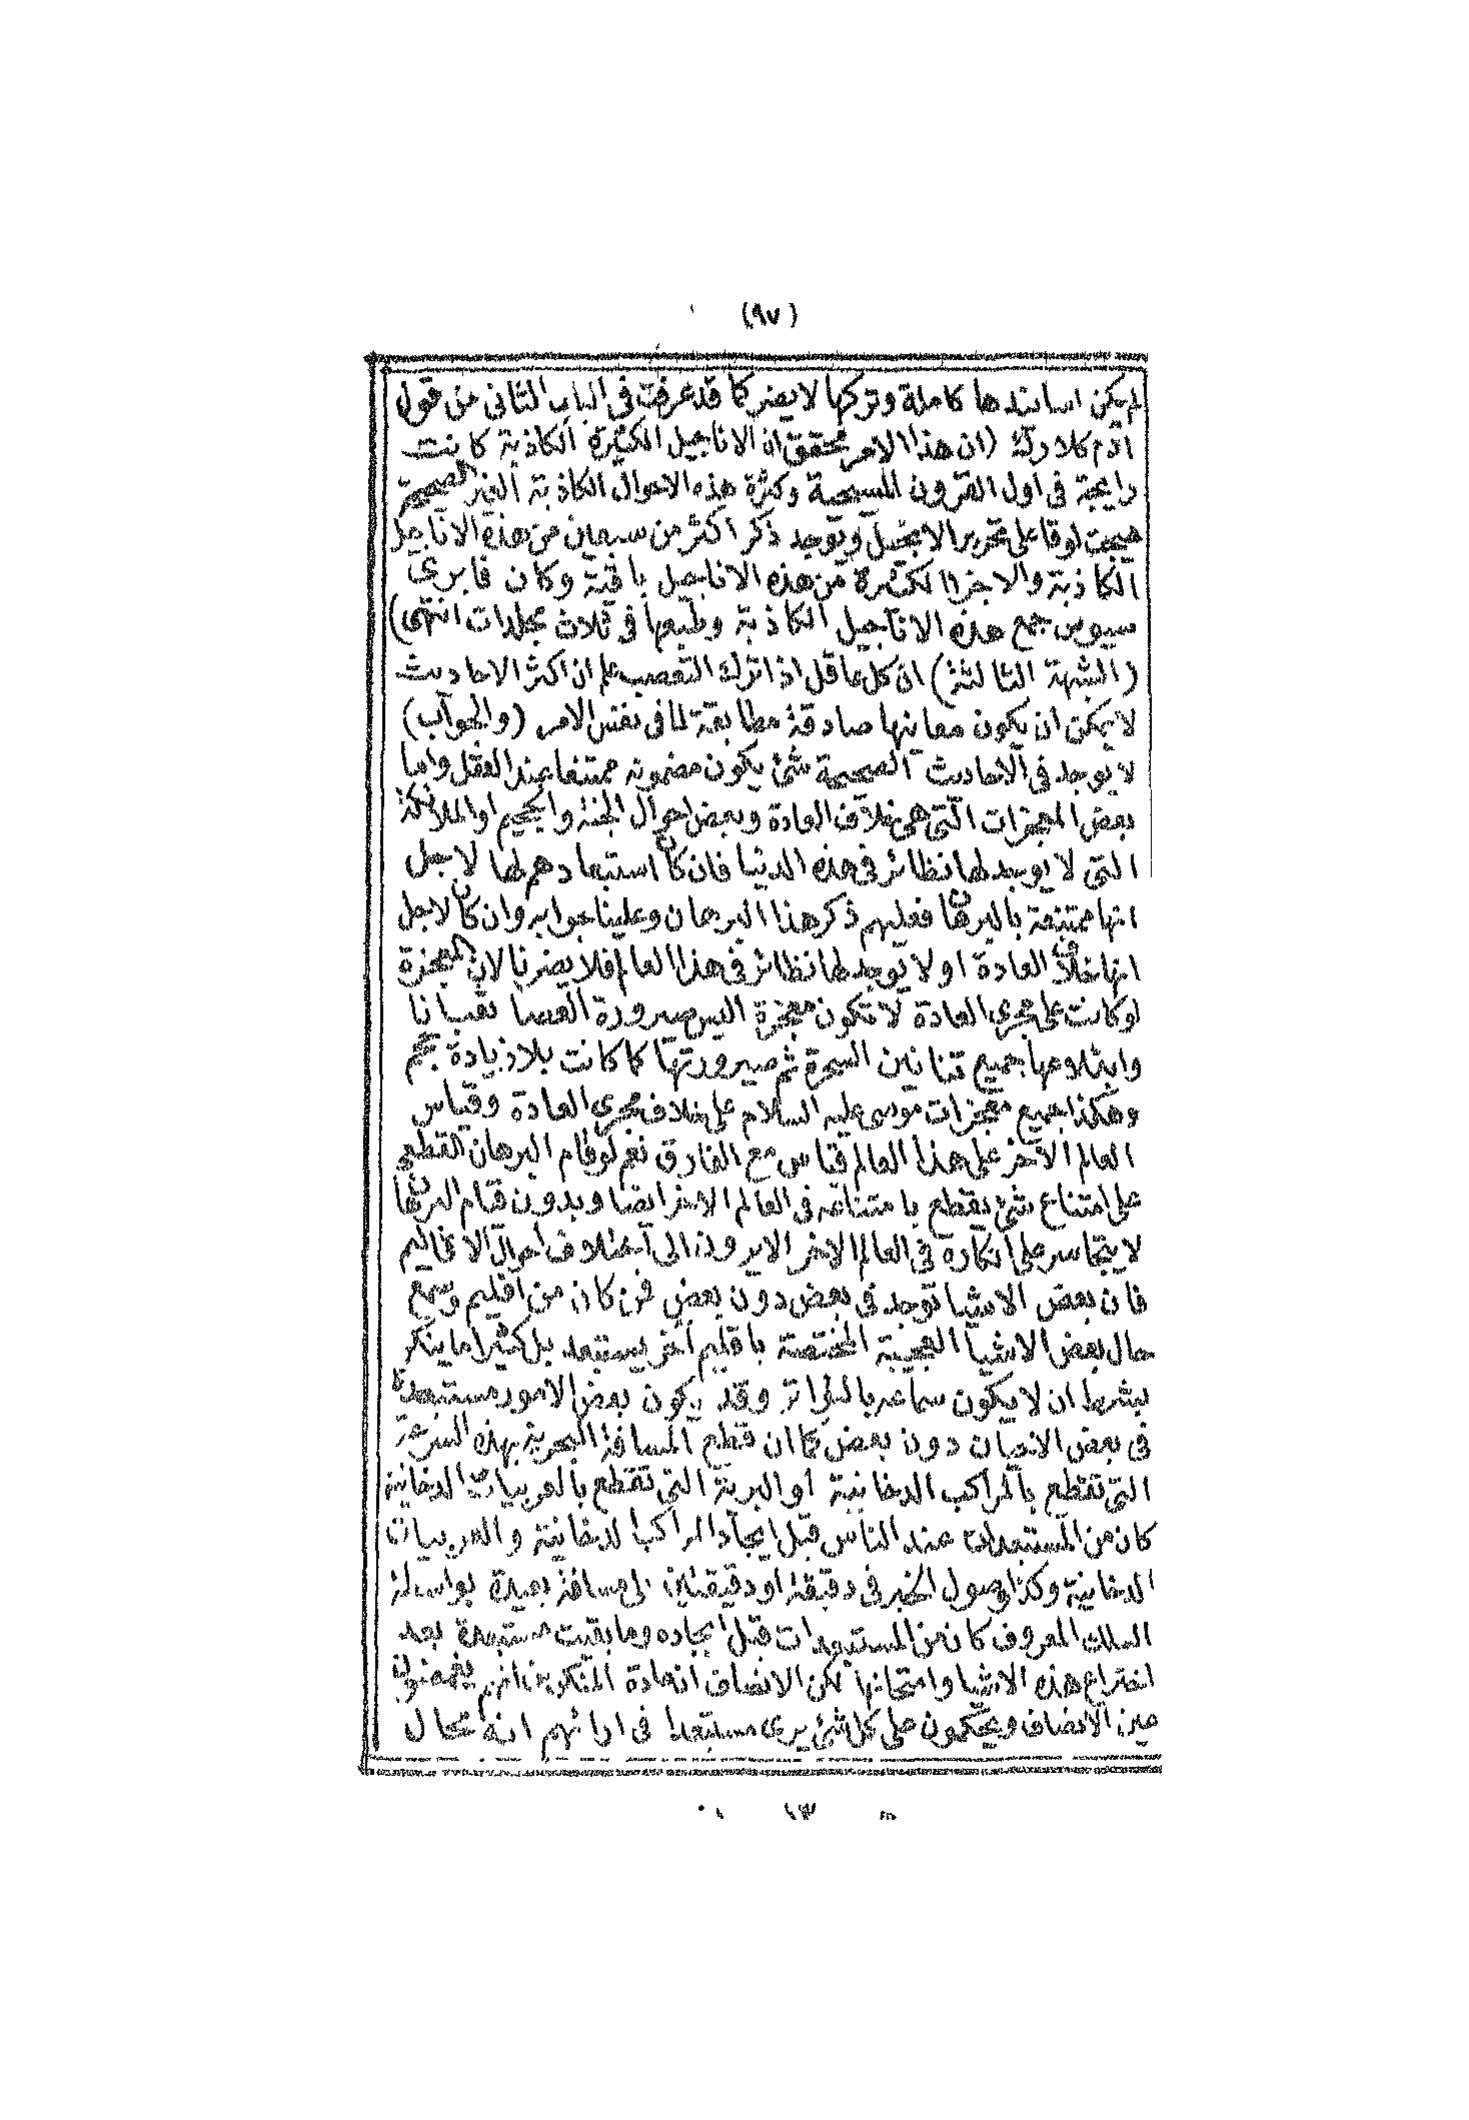 (٩٧)
لم يكن اسانيدها كاملة وتركها لا يضر كما قد عرفت فى الباب الثانى من قول
ادم كلارك (ان هذا الامر محقق ان الاناجيل الكثيرة الكاذبة كانت
رايجة فى اول القرون المسيحية وكثرة هذه الاحوال الكاذبة الغير الصحيحة
هيجت لوقا على تحرير الانجيل ويوجد ذكر اكثر من سبعين من هذه الاناجيل
الكاذبة والاجزاا لكثيرة من هذه الاناجيل باقية وكان فابرى
سيوس جمع هذه الاناجيل الكاذبة وطبعها فى ثلاث مجلدات انتهى)
(الشبهة الثالثة) ان كل عاقل اذا ترك التعصب علم ان اكثر الاحاديث
لا يمكن ان يكون معانيها صادقة مطابقة لما فى نفس الامر (والجواب)
لا يوجد فى الاحاديث الصحيحة شئ يكون مضمونه ممتنعا عند العقل واما
بعض المعجزات التى هى خلاف العادة وبعض احوال الجنة والجحيم او الملائكة
التى لا يوجد لها نظائر فى هذه الدنيا فان كان استبعادهم لها لاجل
انها ممتنعة بالبرهان فعليهم ذكر هذا البرهان وعلينا جوابه وان كان لاجل
انها خلاف العادة او لا يوجد لها نظائر فى هذا العالم فلا يضرنا لان المعجزة
لو كانت على مجرى العادة لا تكون معجزة اليس صيرورة العصا ثعبانا
وابتلاعها جميع تنانين السحرة ثم صيرورتها كما كانت بلا زيادة حجم
وهكذا جميع معجزات موسى عليه السلام على خلاف مجرى العادة وقياس
العالم الآخر على هذا العالم قياس مع الفارق نعم لو قام البرهان القطعى
على امتناع شئ يقطع بامتناعه فى العالم الاخر ايضا وبدون قيام البرهان
لا يتجاسر على انكاره فى العالم الاخر الا يرون الى اختلاف احوال الاقاليم
فان بعض الاشيا توجد فى بعض دون بعض فمن كان من اقليم وسمع
حال بعض الاشيا العجيبة المختصة باقليم آخر يستبعد بل كثيرا ما ينكر
بشرط ان لا يكون سماعه بالتواتر وقد يكون بعض الامور مستبعدة
فى بعض الاحيان دون بعض كما ان قطع المسافة البحرية بهذه السرعة
التى تقطع بالمراكب الدخانية او البرية التى تقطع بالعربيات الدخانية
كان من المستبعدات عند الناس قبل ايجاد المراكب الدخانية والعربيات
الدخانية وكذا وصول الخبر فى دقيقة او دقيقتين الى مسافة بعيدة بواسطة
السلك المعروف كان من المستبعدات قبل ايجاده وما بقيت مستبعدة بعد
اختراع هذه الاشيا وامتحانها لكن الانصاف ان عادة المنكرين انهم يغمضون
عين الانصاف ويحكمون على كل شئ يرى مستبعدا فى ارائهم انه محال
١٣